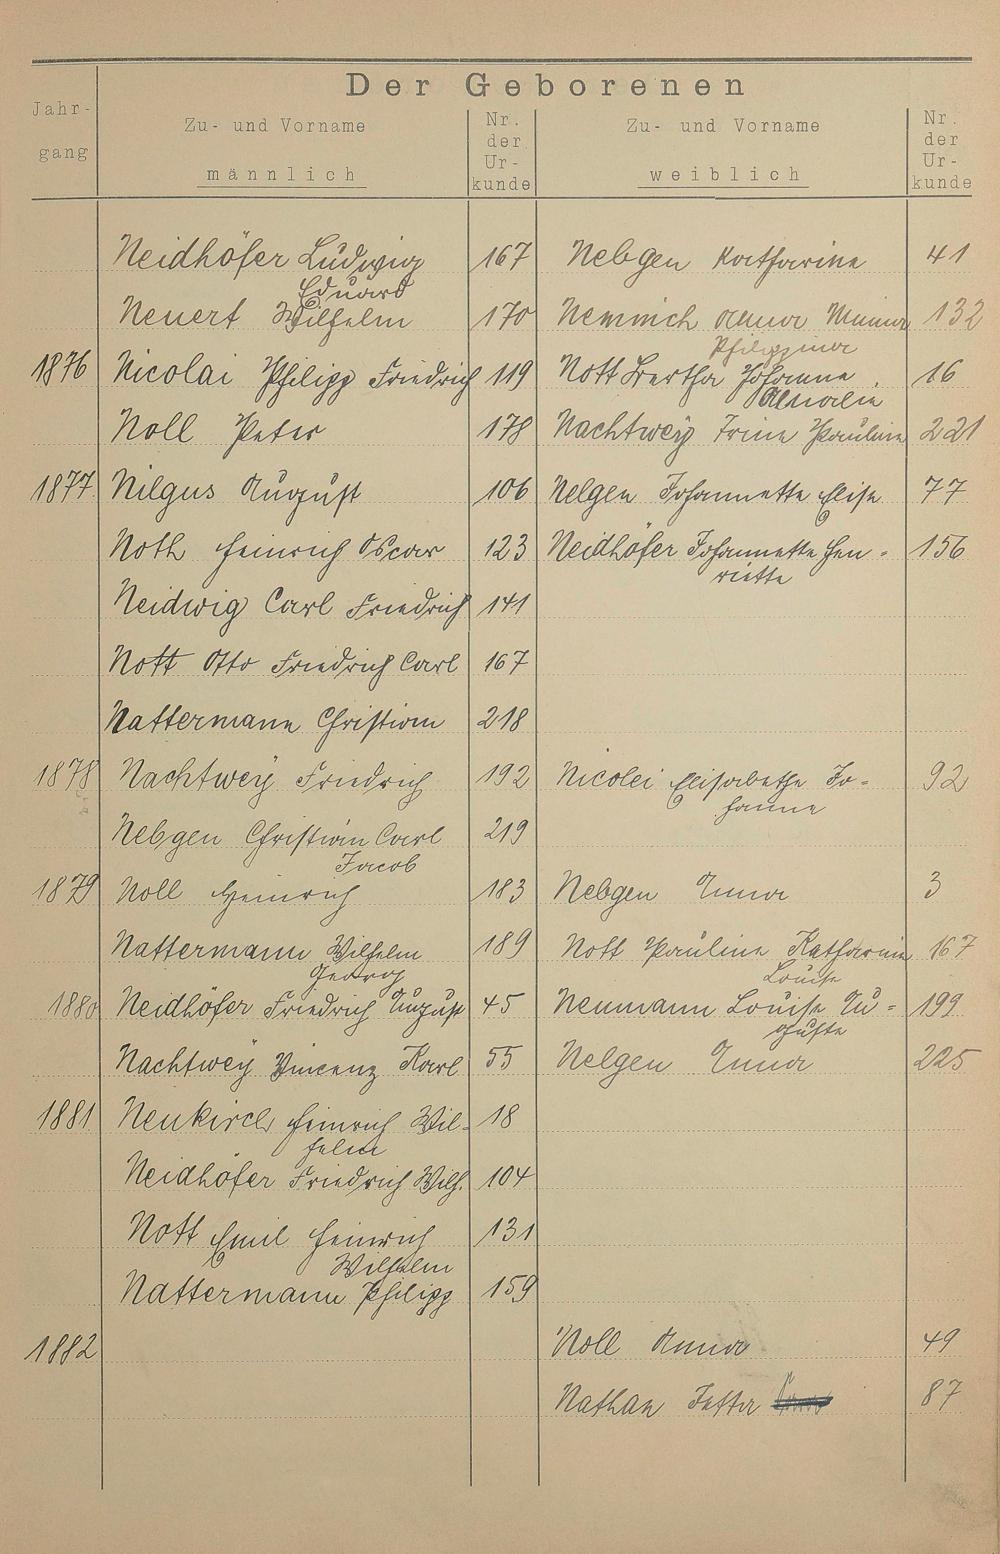 Der Geborenen
Jahr-
gang
Zu- und Vorname
männlich
Nr.
der
Ur-
kunde
Zu- und Vorname
weiblich
Nr.
der
Ur-
kunde
Neidhöfer Ludwig 167 Nebgen Katharine 41
Eduard
Neuert Wilhelm 170 Nemnich Anna Minna 132
Philippina
1876 Nicolai Philipp Friedrich 119 Nott Bertha Johanna 16
Amalie
Noll Peter 178 Nachtwey Irine Pauline 221
1877 Nilgus August 106 Nelgen Johannette Elise 77
Noth Heinrich Oscar 123 Neidhöfer Johannette Hen- 156
riette
Neidwig Carl Friedrich 141
Nott Otto Friedrich Carl 167
Nattermann Christian 218
1878 Nachtwey Friedrich 192 Nicolei Elisabethe Jo- 92
hanne
Nebgen Christian Carl 219
Jacob
1879 Noll Heinrich 183 Nebgen Anna 3
Nattermann Wilhelm 189 Nott Pauline Katharine 167
Georg Louise
1880 Neidhöfer Friedrich August 45 Neumann Louise Au- 199
guste
Nachtwey Vincenz Karl 55 Nelgen Anna 225
1881 Neukirch Heinrich Wil- 18
helm
Neidhöfer Friedrich Wilh. 104
Nott Emil Heinrich 131
Wilhelm
Nattermann Philipp 159
1882 Noll Anna 49
Nathan Jetta 87